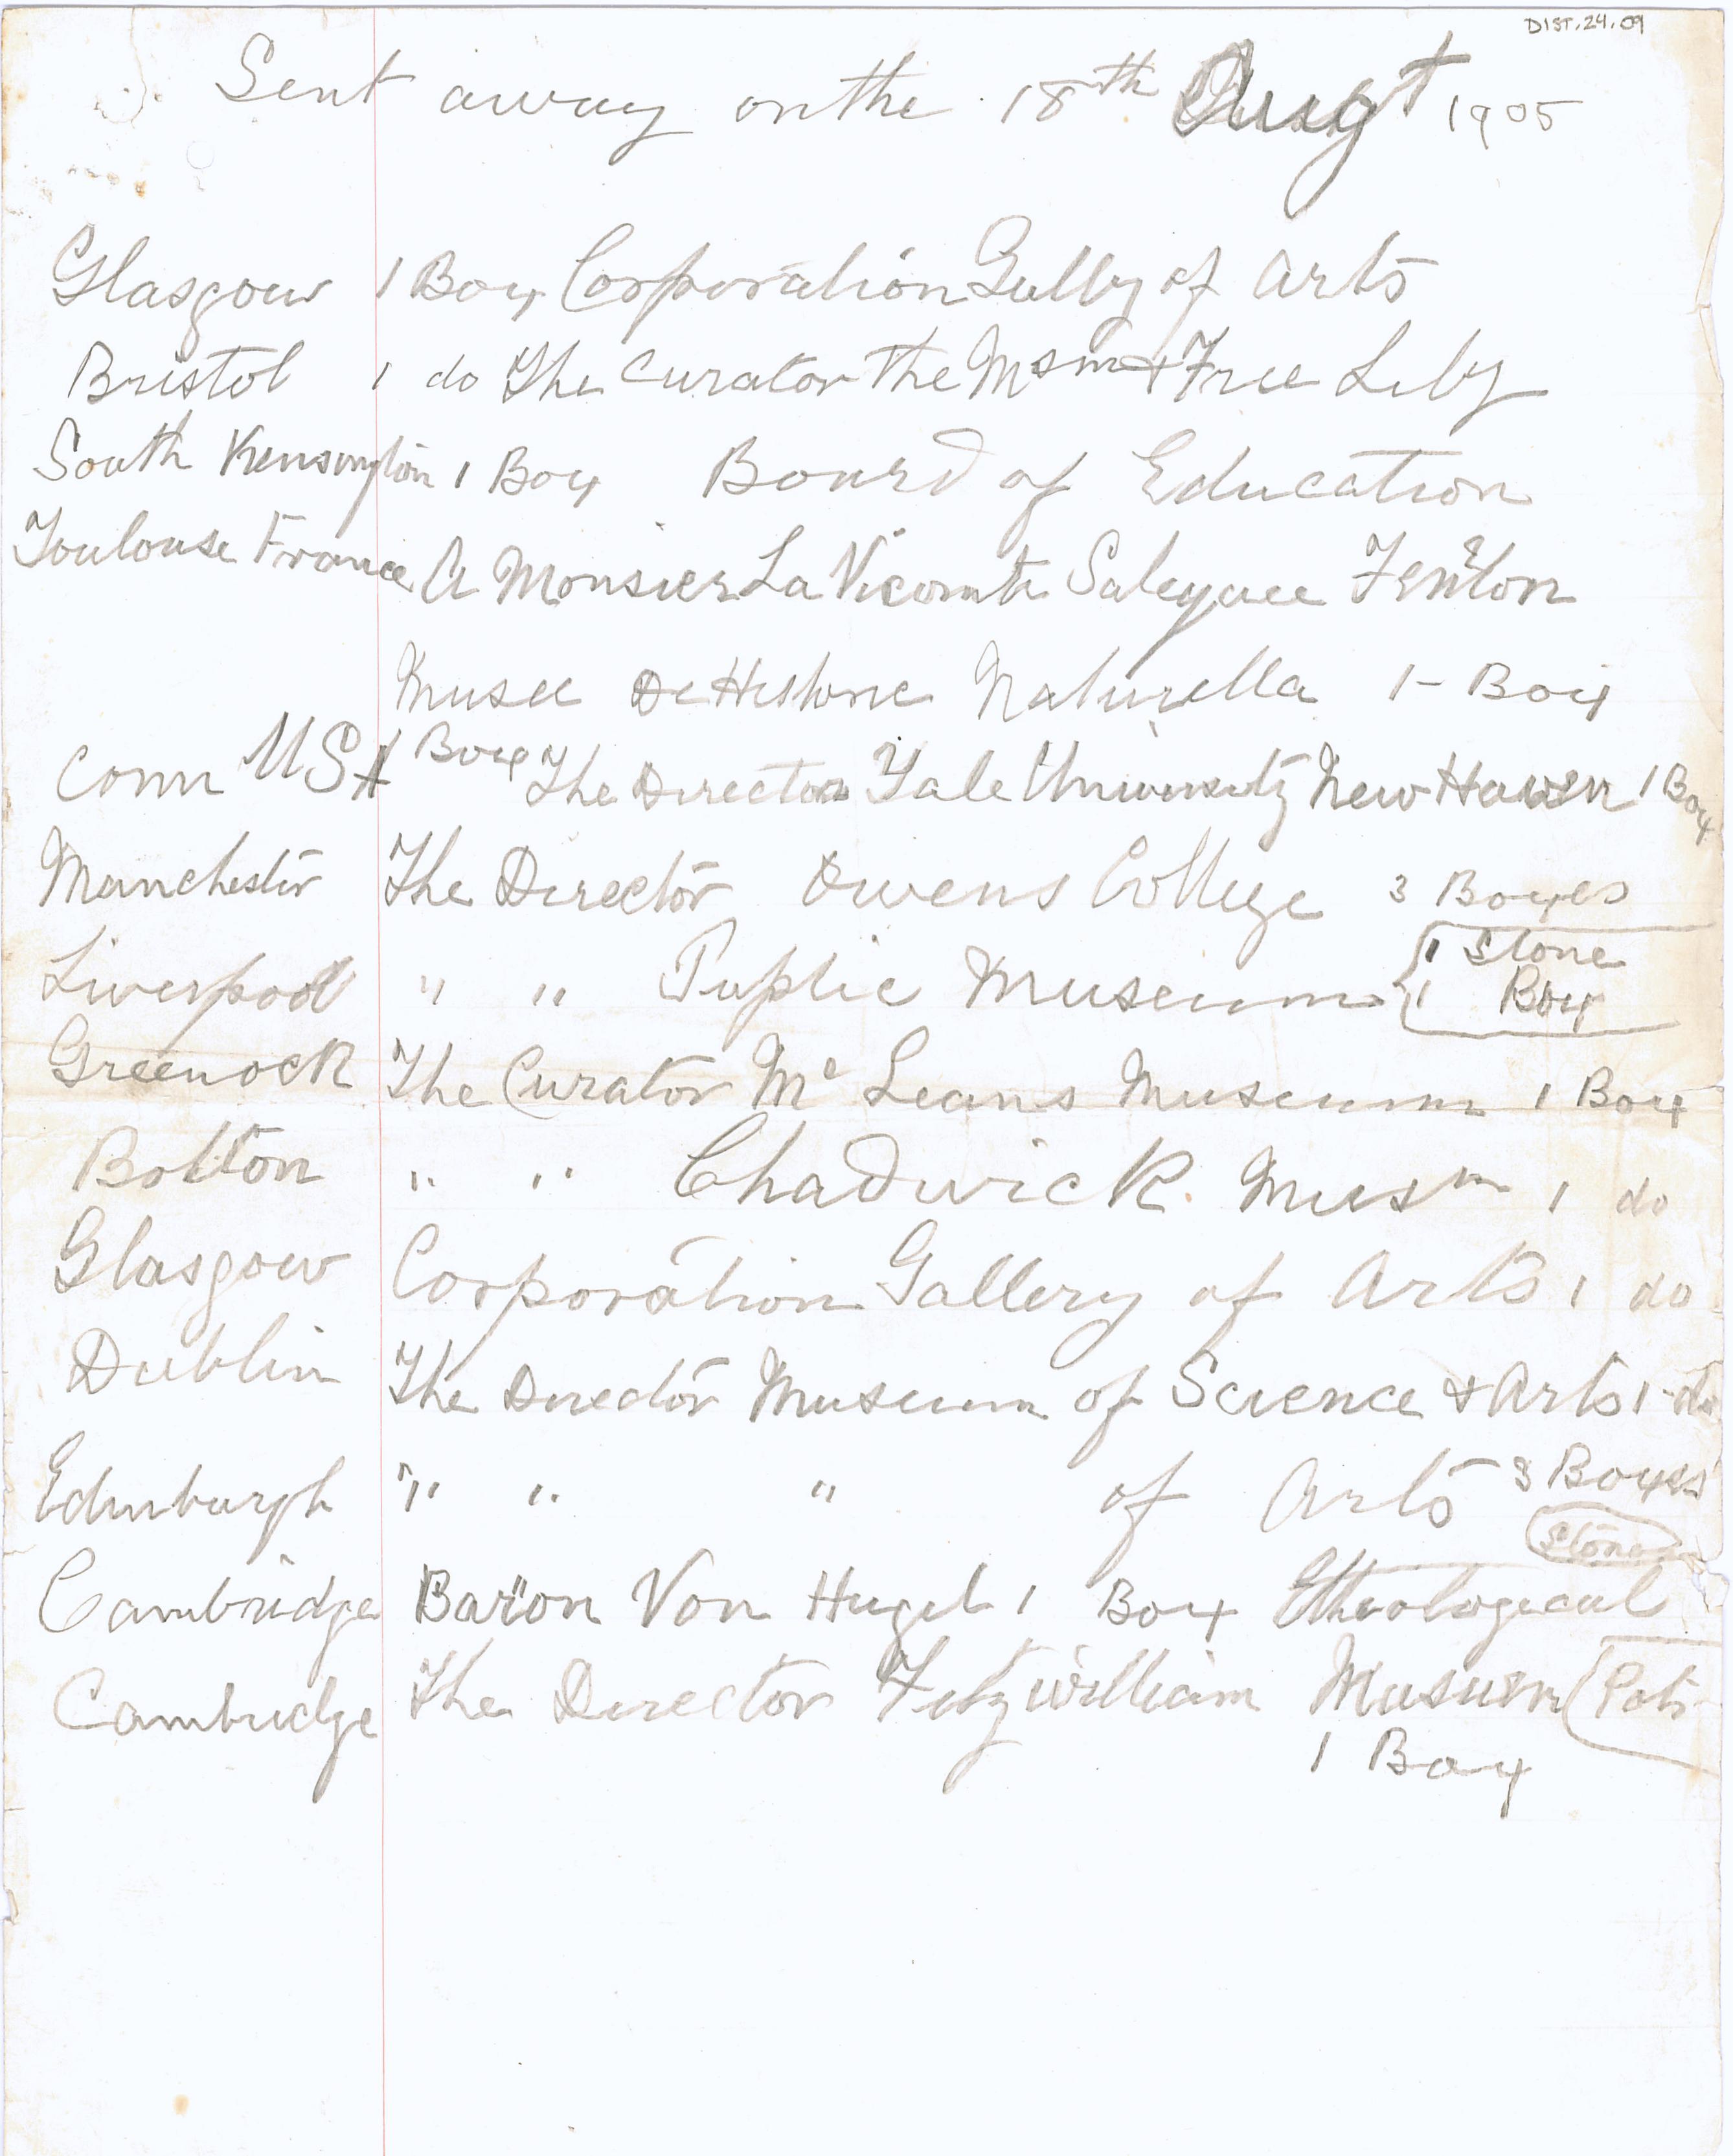 DIST.24.09
Sent away on the 18th Augt 1905
Glasgow 1 Box Corporation Gallby of Arts
Bristol 1 do The Curator The Msm & Free Liby
South Kensington 1 Box Board of Education
Toulouse France A Monsier La Vicomte Fenton
Musee De Histoire Naturella 1 - Box
Conn USA Box The Director Yale University New Haven 1 Box
Manchester The Director Owens College 3 Boxes
Liverpool " " Puplic Museum { 1 Stone
1 Box
Greenock The Curator Mc Leans Museum 1 Box
Bolton " " Chadwick Musm 1 do
Glasgow Corporation Gallery of Arts 1 do
Dublin The Director Museum of Science & Arts 1 - do
Edinburgh " " " of Arts 3 Boxes
Stone
Cambridge Baron Von Hugel 1 Box
Cambridge The Director Fitzwilliam Museum
1 Box